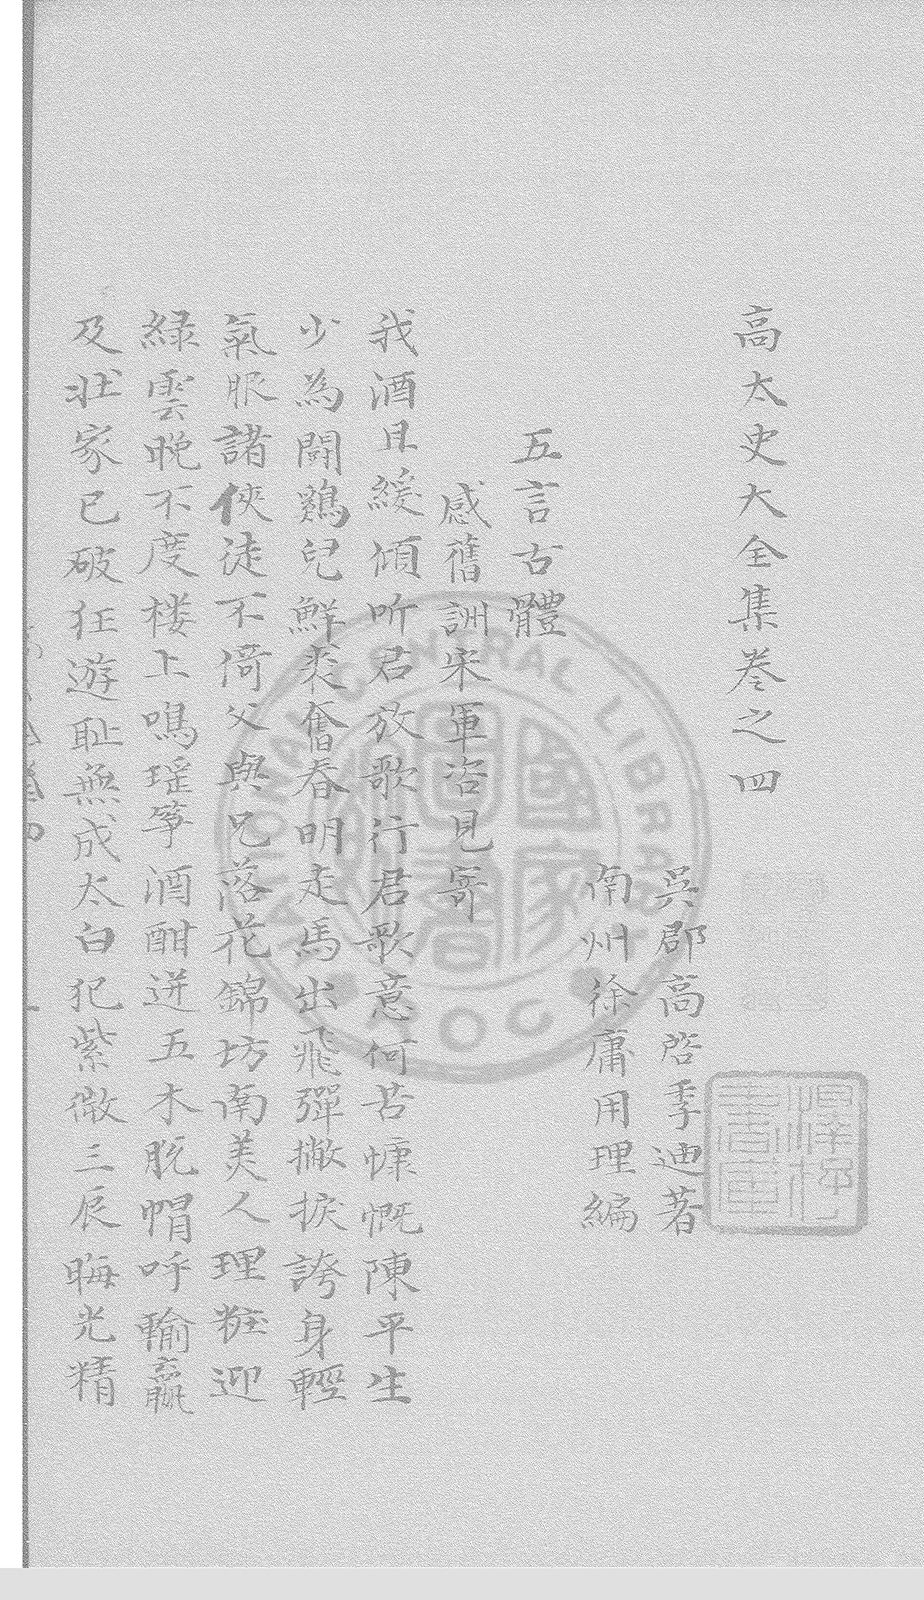 高太史大全集卷之四
吳郡高啓季迪著
南州徐庸用理編
五言古體
感舊詶宋軍咨見寄
我酒且緩傾听君放歌行君歌意何苦慷慨陳平生
少為鬪鷄兒鮮裘奮春明走馬出飛彈撇捩誇身輕
氣服諸俠徒不倚父與兄落花錦坊南美人理粧迎
綠雲晚不度楼上鳴瑶筝酒酣迸五木脫帽呼輸贏
及壯家已破狂遊耻無成太白犯紫微三辰晦光精
NATIONAL CENTRAL LIBRARY
R.O.C.
國家圖書館